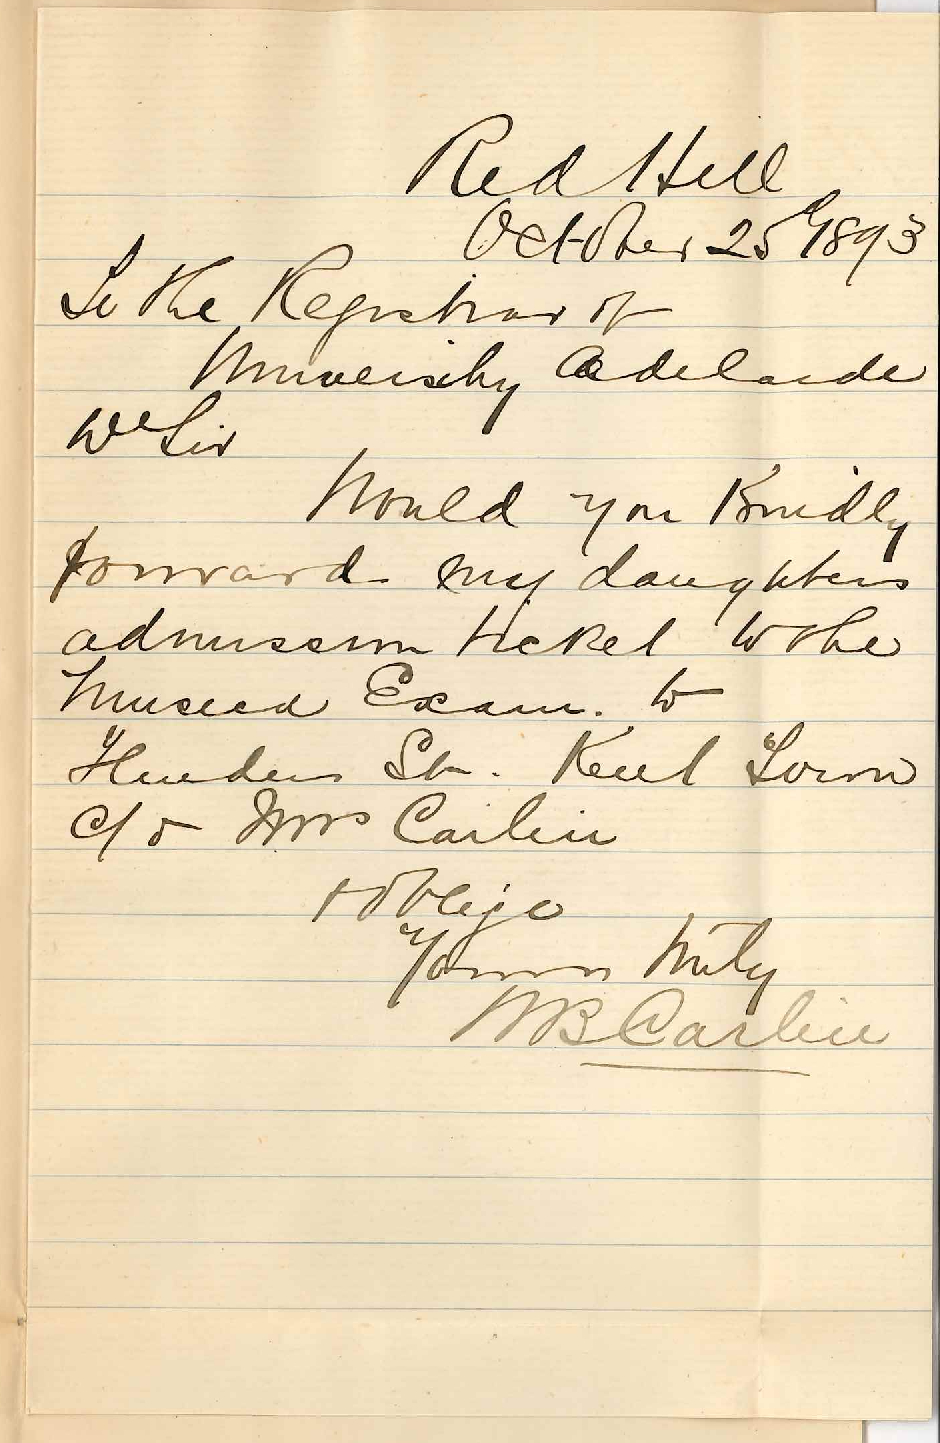 Red Hill
October 25th 1893
To the Registrar of
University Adelaide
Dr Sir
Would you Kindly
forward my daughters
admission ticket to the
Musical Exam. to
Flinders St. Kent Town
c/o Mrs Carlin
& oblige
Yours truly
WB Carlin